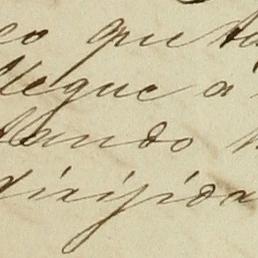 co que ta
llegue á
tando
dirijida